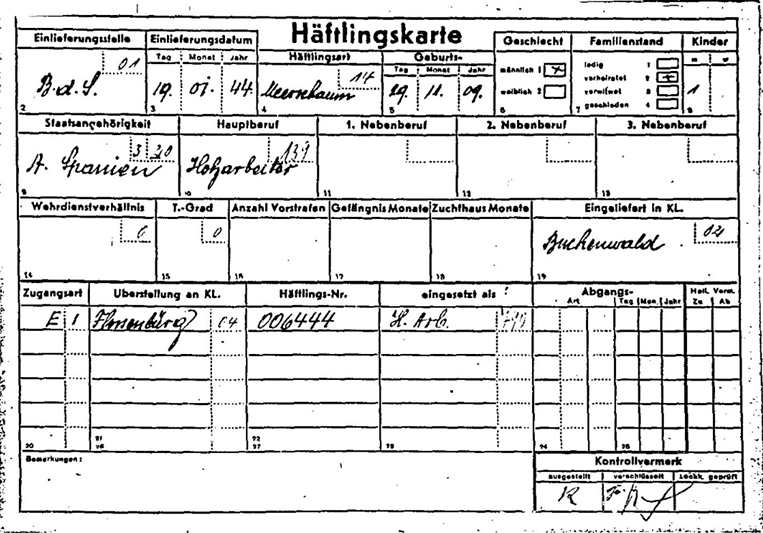 Häftlingskarte
Einlieferungsstelle 01
B.d.S.
2
Einlieferungsdatum
Tag Monat Jahr
19. 01. 44
3
Häftlingsart 14
Meerschaum
4
Geburts-
Tag Monat Jahr
29 11. 09.
5
Geschlecht
männlich 1 x
weiblich 2
6
Familienstand
ledig 1
verheiratet 2 x
verwitwet 3
geschieden 4
7
Kinder
m w
1
8
Staatsangehörigkeit
3 20
A. Spanien
9
Hauptberuf
139
Holzarbeiter
10
1. Nebenberuf
11
2. Nebenberuf
12
3. Nebenberuf
13
Wehrdienstverhältnis
0
14
T.-Grad
0
15
Anzahl Vorstrafen
16
Gefängnis Monate
17
Zuchthaus Monate
18
Eingeliefert in KL.
02
Buchenwald
19
Zugangsart Überstellung an KL. Häftlings-Nr. eingesetzt als Abgangs- Haftl. Verst.
Art Tag Mon. Jahr Zu Ab
E 1 04 006444 H. Arb.
20 21 22 23 24 25
26 27
Bemerkungen:
Kontrollvermerk
ausgestellt verschlüsselt Lochk. geprüft
R